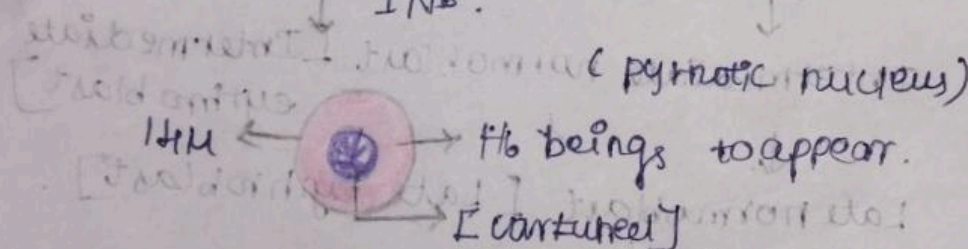 INB.
( pyrnotic nucleus)
14µ
Hb beings to appear.
[cartuneel]